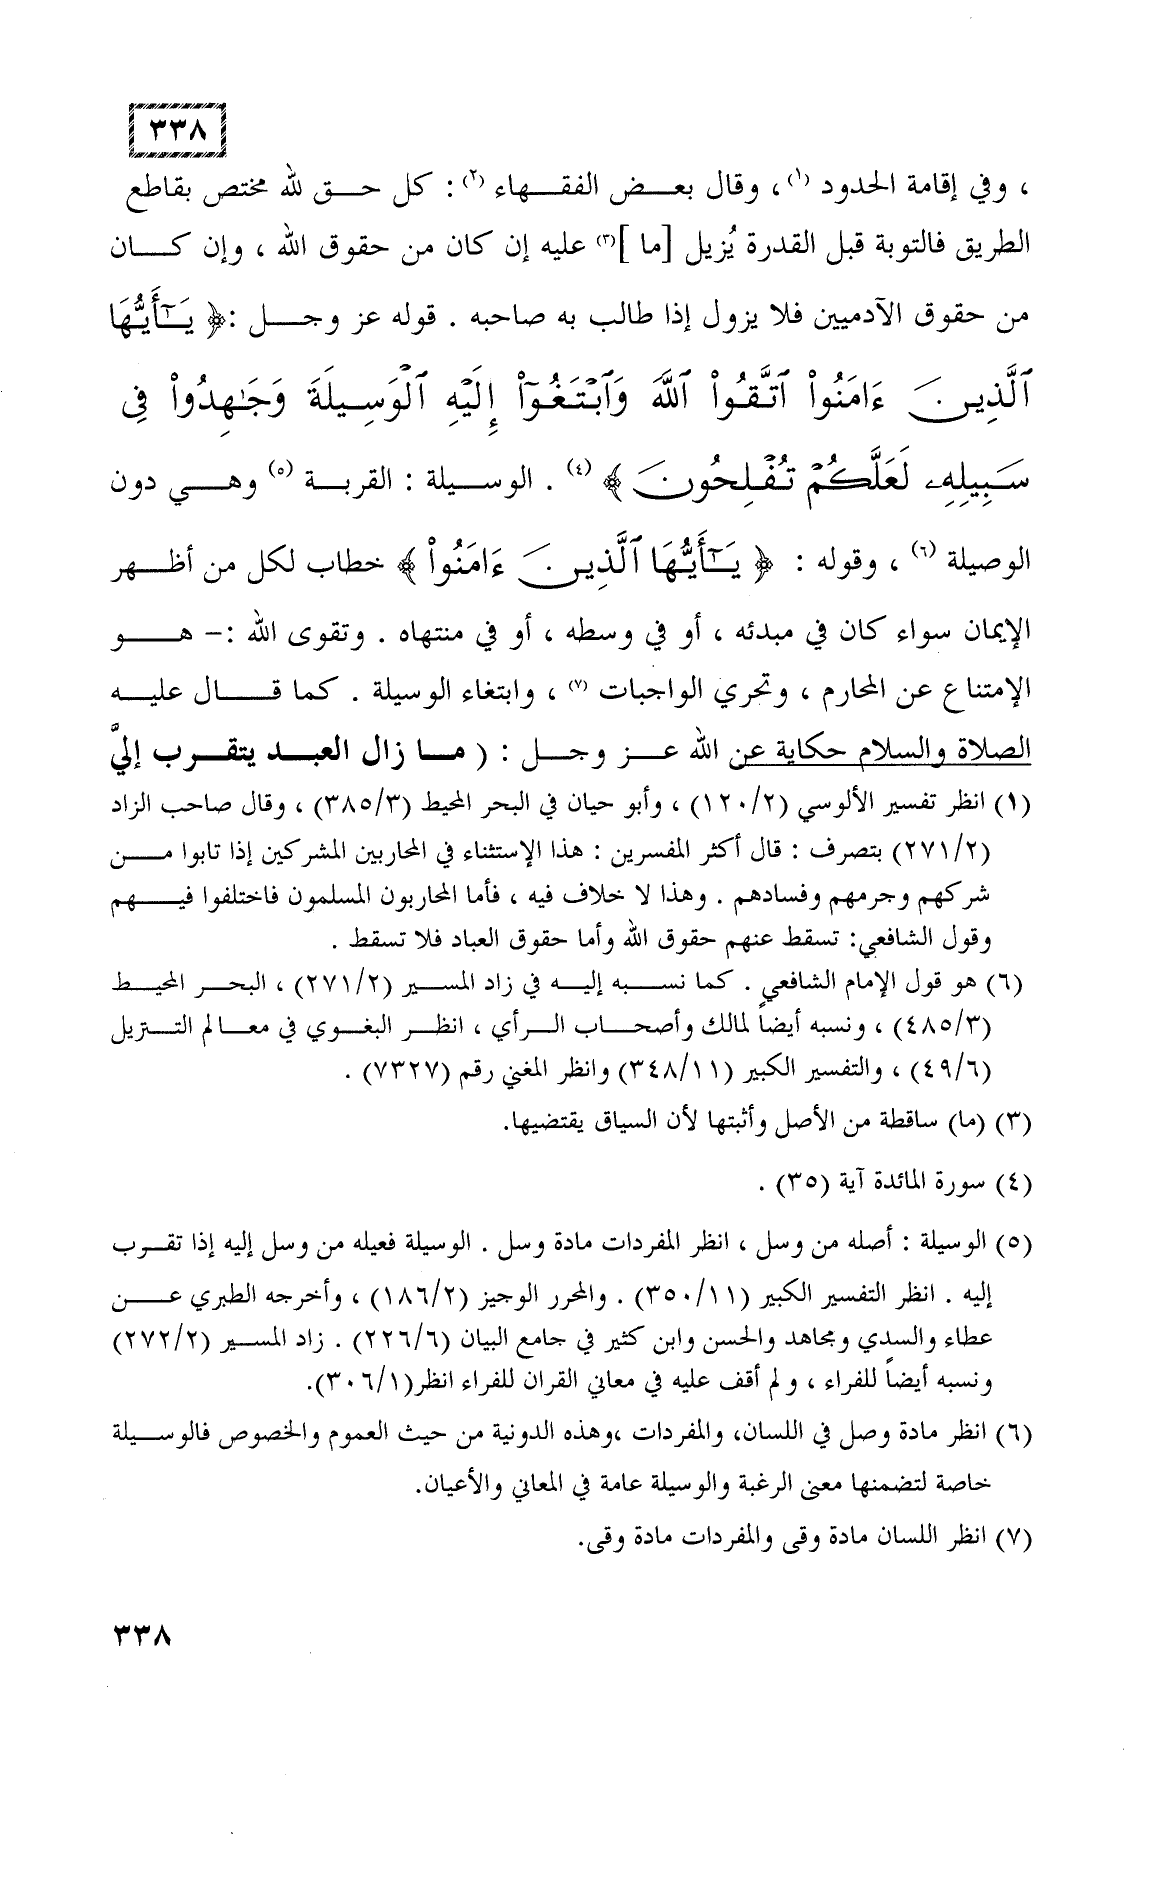 ٣٣٨
، وفي إقامة الحدود (١) ، وقال بعض الفقهاء (٢) : كل حق لله مختص بقاطع
الطريق فالتوبة قبل القدرة يُزيل [ما ](٣) عليه إن كان من حقوق الله ، وإن كان
من حقوق الآدميين فلا يزول إذا طالب به صاحبه . قوله عز وجل :﴿ يَـٰٓأَيُّهَا
ٱلَّذِينَ ءَامَنُوا۟ ٱتَّقُوا۟ ٱللَّهَ وَٱبْتَغُوٓا۟ إِلَيْهِ ٱلْوَسِيلَةَ وَجَـٰهِدُوا۟ فِى
سَبِيلِهِۦ لَعَلَّكُمْ تُفْلِحُونَ ﴾ (٤) . الوسيلة : القربة (٥) وهي دون
الوصيلة (٦) ، وقوله : ﴿ يَـٰٓأَيُّهَا ٱلَّذِينَ ءَامَنُوا۟ ﴾ خطاب لكل من أظهر
الإيمان سواء كان في مبدئه ، أو في وسطه ، أو في منتهاه . وتقوى الله :- هو
الإمتناع عن المحارم ، وتحري الواجبات (٧) ، وابتغاء الوسيلة . كما قال عليه
الصلاة والسلام حكاية عن الله عز وجل : ( ما زال العبد يتقرب إليَّ
(١) انظر تفسير الألوسي (١٢٠/٢) ، وأبو حيان في البحر المحيط (٣٨٥/٣) ، وقال صاحب الزاد
(٢٧١/٢) بتصرف : قال أكثر المفسرين : هذا الإستثناء في المحاربين المشركين إذا تابوا من
شركهم وجرمهم وفسادهم . وهذا لا خلاف فيه ، فأما المحاربون المسلمون فاختلفوا فيهم
وقول الشافعي: تسقط عنهم حقوق الله وأما حقوق العباد فلا تسقط .
(٦) هو قول الإمام الشافعي . كما نسبه إليه في زاد المسير (٢٧١/٢) ، البحر المحيط
(٤٨٥/٣) ، ونسبه أيضاً لمالك وأصحاب الرأي ، انظر البغوي في معالم التتريل
(٤٩/٦) ، والتفسير الكبير (٣٤٨/١١) وانظر المغني رقم (٧٣٢٧) .
(٣) (ما) ساقطة من الأصل وأثبتها لأن السياق يقتضيها.
(٤) سورة المائدة آية (٣٥) .
(٥) الوسيلة : أصله من وسل ، انظر المفردات مادة وسل . الوسيلة فعيله من وسل إليه إذا تقرب
إليه . انظر التفسير الكبير (٣٥٠/١١) . والمحرر الوجيز (١٨٦/٢) ، وأخرجه الطبري عن
عطاء والسدي ومجاهد والحسن وابن كثير في جامع البيان (٢٢٦/٦) . زاد المسير (٢٧٢/٢)
ونسبه أيضاً للفراء ، ولم أقف عليه في معاني القران للفراء انظر(٣٠٦/١).
(٦) انظر مادة وصل في اللسان، والمفردات ،وهذه الدونية من حيث العموم والخصوص فالوسيلة
خاصة لتضمنها معنى الرغبة والوسيلة عامة في المعاني والأعيان.
(٧) انظر اللسان مادة وقى والمفردات مادة وقى.
٣٣٨